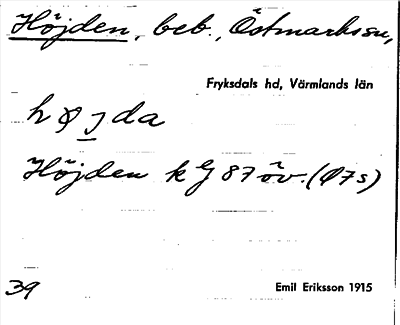 Höjden, beb., Östmarks sn,
Fryksdals hd, Värmlands län
højda
Höjden k G 87 öv. (Ø7s)
39
Emil Eriksson 1915